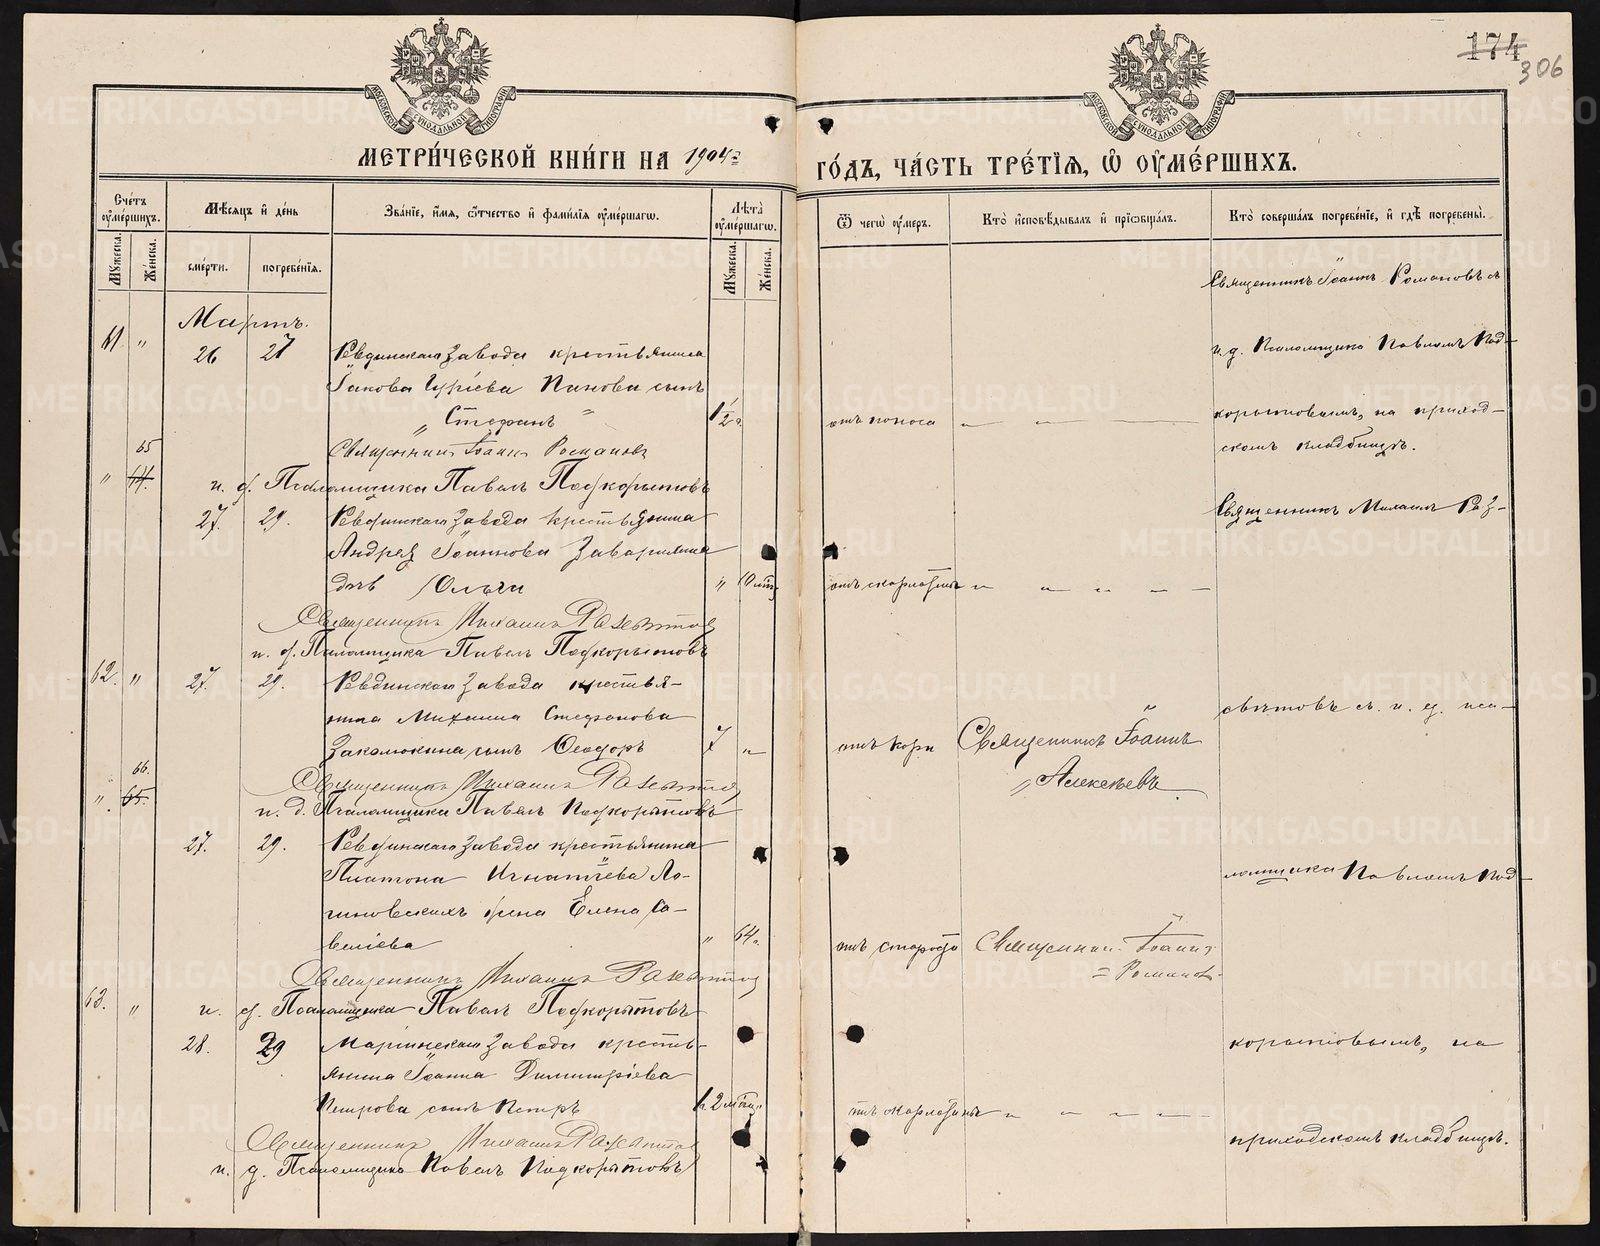 174
306
МОСКОВСКОЙ СѴНОДАЛЬНОЙ ТИПОГРАФІИ
МОСКОВСКОЙ СѴНОДАЛЬНОЙ ТИПОГРАФІИ
МЕТРИ́ЧЕСКОЙ КНИ́ГИ НА 1904
ГО́ДЪ, ЧА́СТЬ ТРЕ́ТІЯ, Ѡ҆ ОУ҆МЕ́РШИХЪ.
Сче́тъ оу҆ме́ршихъ.
Мѣ́сяцъ и҆ де́нь
Зва́ніе, и҆́мя, ѻ҆́тчество и҆ фами́лія оу҆ме́ршагѡ.
Лѣта̀ оу҆ме́ршагѡ.
Ѿ чегѡ̀ оу҆́меръ.
Кто̀ и҆сповѣ́дывалъ и҆ прїѡбща́лъ.
Кто̀ соверша́лъ погребе́ніе, и҆ гдѣ̀ погребены̀.
Му́жеска.
Же́нска.
сме́рти.
погребе́нія.
Му́жеска.
Же́нска.
Мартъ.
61 " 26 27 Ревдинскаго завода крестьянина
Іакова Гурiева Панова сынъ
" Стефанъ " 1 1/2 г. отъ поноса
Священникъ Іоаннъ Романовъ съ
и. д. Псаломщика Павломъ Под-
корытовымъ, на приход-
скомъ кладбищѣ.
Священникъ Іоаннъ Романовъ
и. д. Псаломщика Павелъ Подкорытовъ
" 65 64. 27. 29. Ревдинскаго завода крестьянина
Андрея Іоаннова
дочь Ольга " отъ скарлатины
Священникъ Михаилъ Раз-
Священникъ Михаилъ
и. д. Псаломщика Павелъ Подкорытовъ
62. " 27. 29. Ревдинскаго завода крестья-
нина Михаила Стефанова
сынъ Ѳеодоръ 7 " отъ кори Священникъ Іоаннъ
" Алексѣевъ
свѣтовъ съ и. д. пса-
Священникъ Михаилъ
и. д. Псаломщика Павелъ Подкорытовъ
" 66. 65. 27. 29. Ревдинскаго завода крестьянина
Платона Игнатіева Ло-
гиновскихъ жена Елена Са-
веліева " 64 отъ старости Священник Іоаннъ
Романовъ
ломщика Павломъ Под-
Священникъ Михаилъ
63. " и. д. Псаломщика Павелъ Подкорытовъ
28. 29 Маріинскаго завода кресть-
янина Іоанна Димитріева
Петрова сынъ Петръ 2 отъ скарлатины
корытовымъ, на
приходскомъ кладбищѣ.
Священникъ Михаилъ
и. д. Псаломщика Павелъ Подкорытовъ